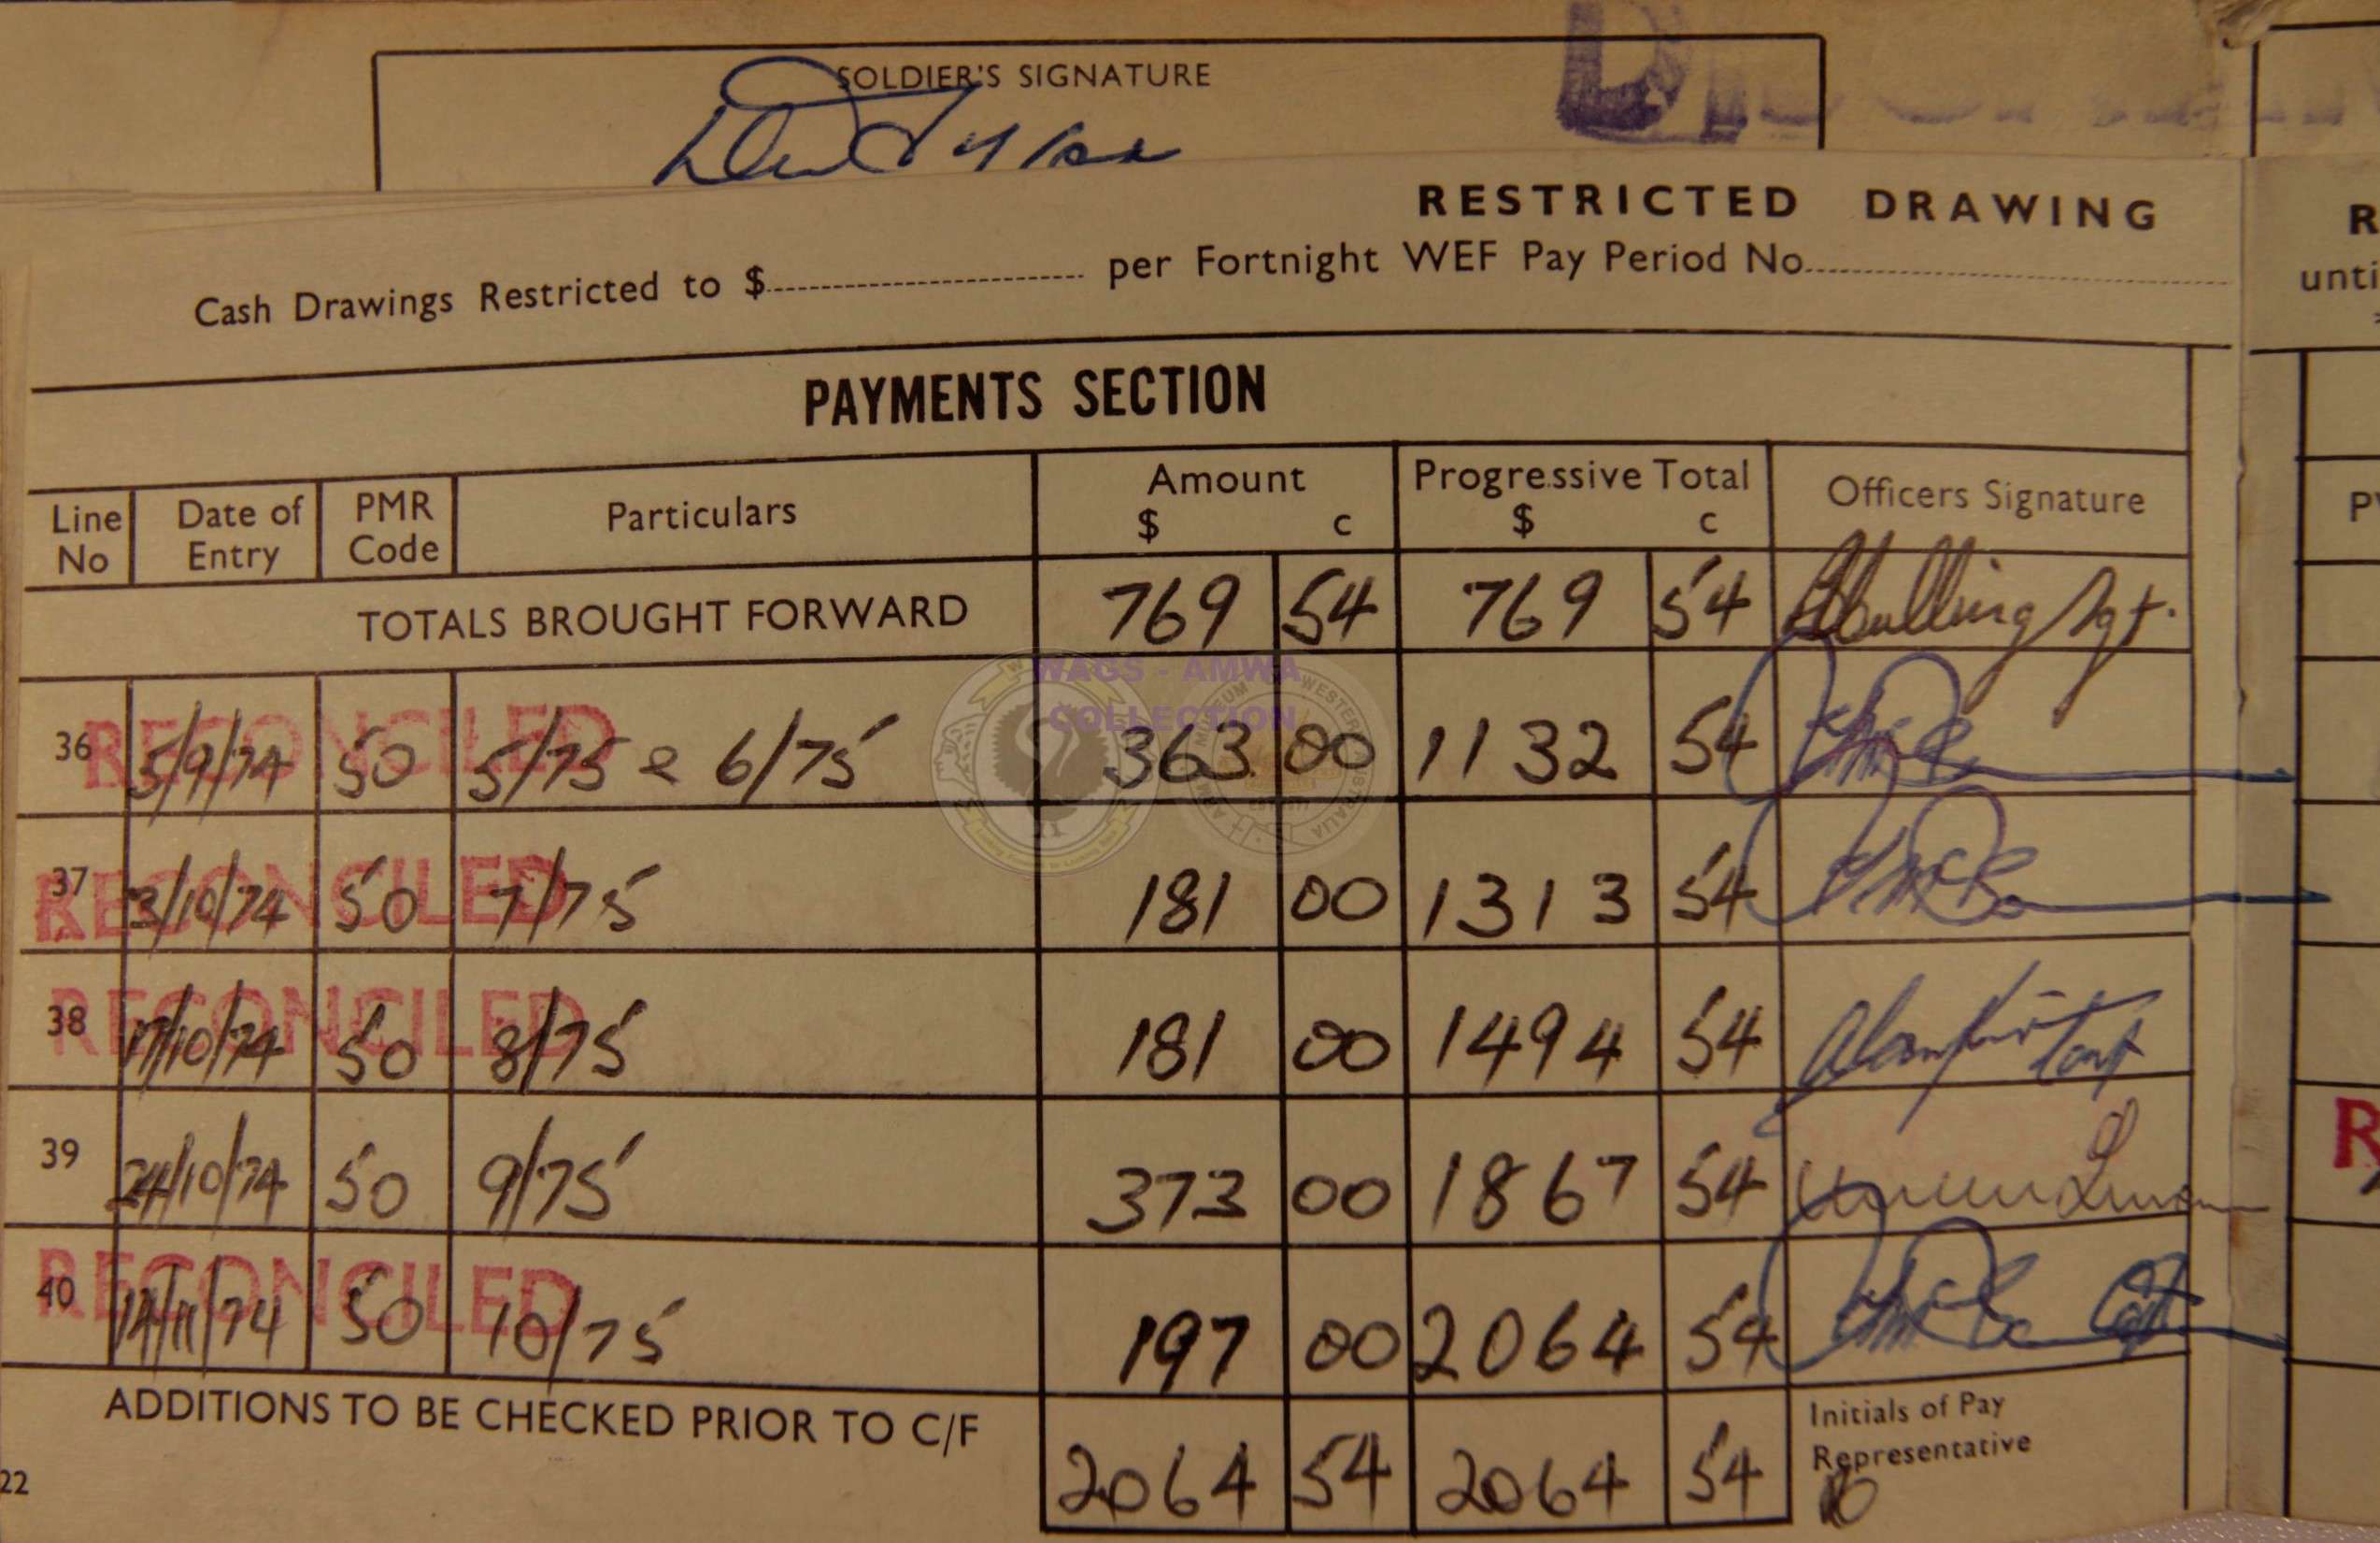 SOLDIER'S SIGNATURE
RESTRICTED DRAWING
Cash Drawings Restricted to $ per Fortnight WEF Pay Period No
PAYMENTS SECTION
Line No Date of Entry PMR Code Particulars Amount $ c Progressive Total $ c Officers Signature
TOTALS BROUGHT FORWARD 769 54 769 54 Sgt.
WAGS - AMWA
COLLECTION
36 5/9/74 50 5/75 & 6/75 363 00 1132 54
RECONCILED
37 3/10/74 50 7/75 181 00 1313 54
RECONCILED
38 17/10/74 50 8/75 181 00 1494 54
RECONCILED
39 24/10/74 50 9/75 373 00 1867 54
40 14/11/74 50 10/75 197 00 2064 54
RECONCILED
ADDITIONS TO BE CHECKED PRIOR TO C/F 2064 54 2064 54 Initials of Pay Representative
22